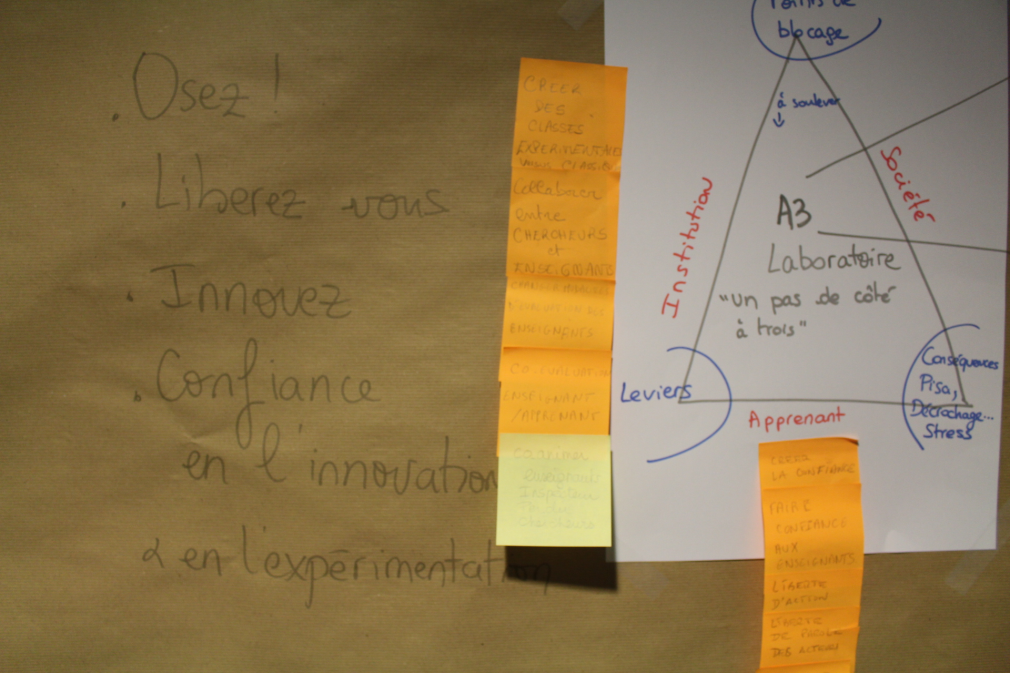 . Osez !
. Liberez vous
. Innovez
. Confiance
en l'innovation
& en l'expérimentation
CREER
DES
CLASSES
EXPERIMENTALES
Collaborer
entre
CHERCHEURS
et
ENSEIGNANT
ENSEIGNANTS
CO-EVALUATION
ENSEIGNANT
/APPRENANT
Enseignants
Inspecteur
Chercheurs
Points de
blocage
à soulever
↓
Institution
Société
A3
Laboratoire
"Un pas de côté
à trois"
Leviers
Conséquences
Pisa,
Décrochage...
Stress
Apprenant
LA CONFIANCE
FAIRE
CONFIANCE
AUX
ENSEIGNANTS
LIBERTE
D'ACTION
LIBERTE
DE PAROLE
DES ACTEURS